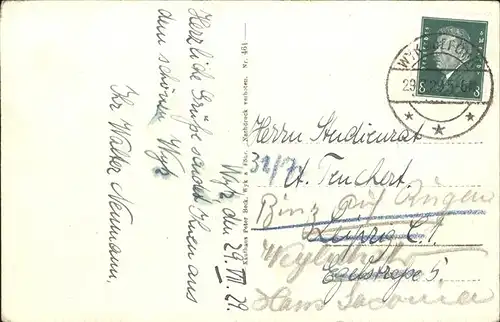 Herzliche Grüße sendet Ihnen aus
dem schönen Wyk
Ihr Walter Neumann.
Wyk, den 29. VII. 29.
Kaufhaus Peter Beck, Wyk a. Föhr. Nachdruck verboten. Nr. 461
8 8
29. 29.5-6
Herrn Studienrat
31/7
A. Teuchert.
Binz auf Rügen
Leipzig C. 1
Egelstraße 5
Haus